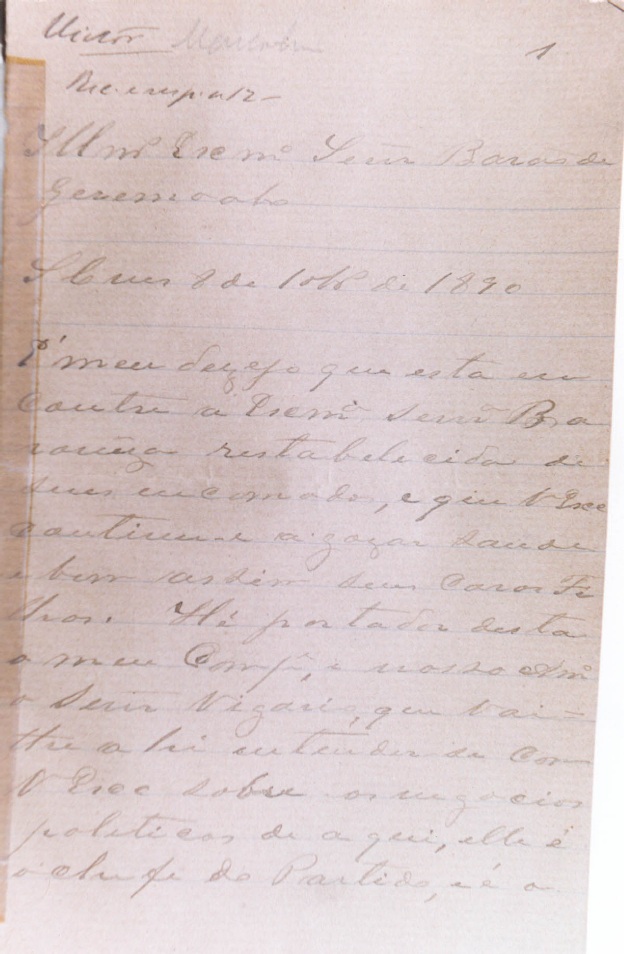 Victor 1
Rec. e resp. a 12 –
Illmº Excmº Senr Barão de
Geremoabo
8 de 10bro de 1890
É meu dezejo que esta en
contre a Excmª Senrª Ba
roneza restabelecida de
seus encomodos, e que V Exce
continue a gozar saude
e bem assim seus caros Fi
lhos. Hé portador desta
o meu Compe, e nosso Amº
o Senr Vigario, que vai –
the a hi entender se com
V Exce sobre os negocios
politicos de a qui, elle é
o chefe do Partido, e é o